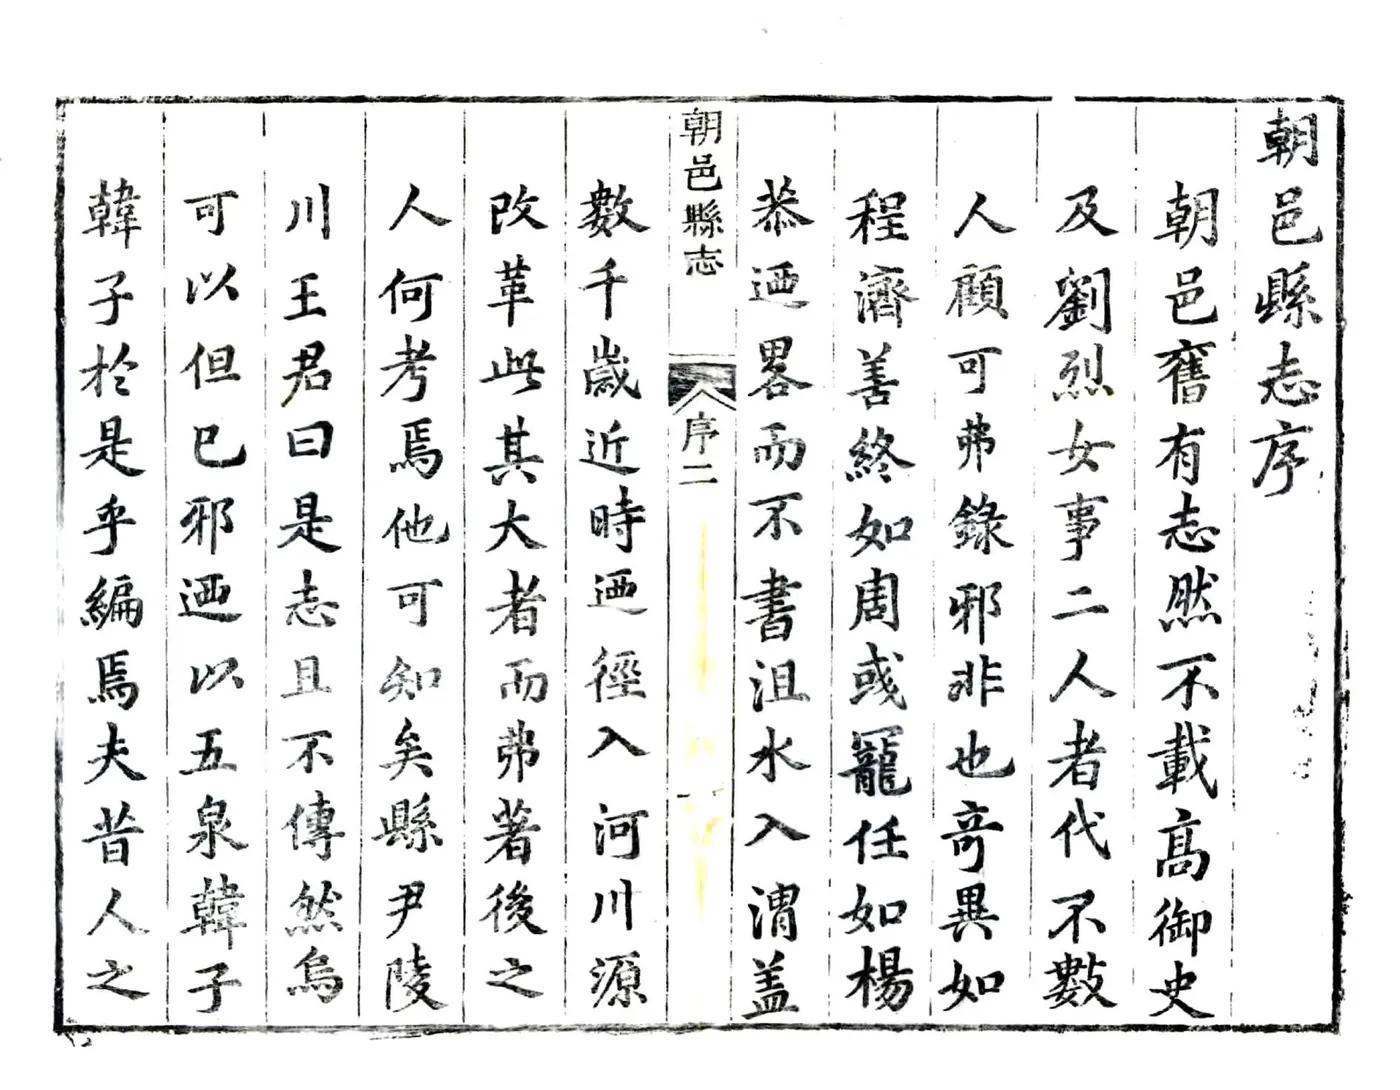 朝邑縣志序
朝邑舊有志然不載高御史
及劉烈女事二人者代不數
人顧可弗錄邪非也竒異如
程濟善終如周彧寵任如楊
恭迺畧而不書沮水入渭盖
朝邑縣志
序二
數千歲近時迺徑入河川源
改革此其大者而弗著後之
人何考焉他可知矣縣尹陵
川王君曰是志且不傳然烏
可以但已邪迺以五泉韓子
韓子於是乎編焉夫昔人之